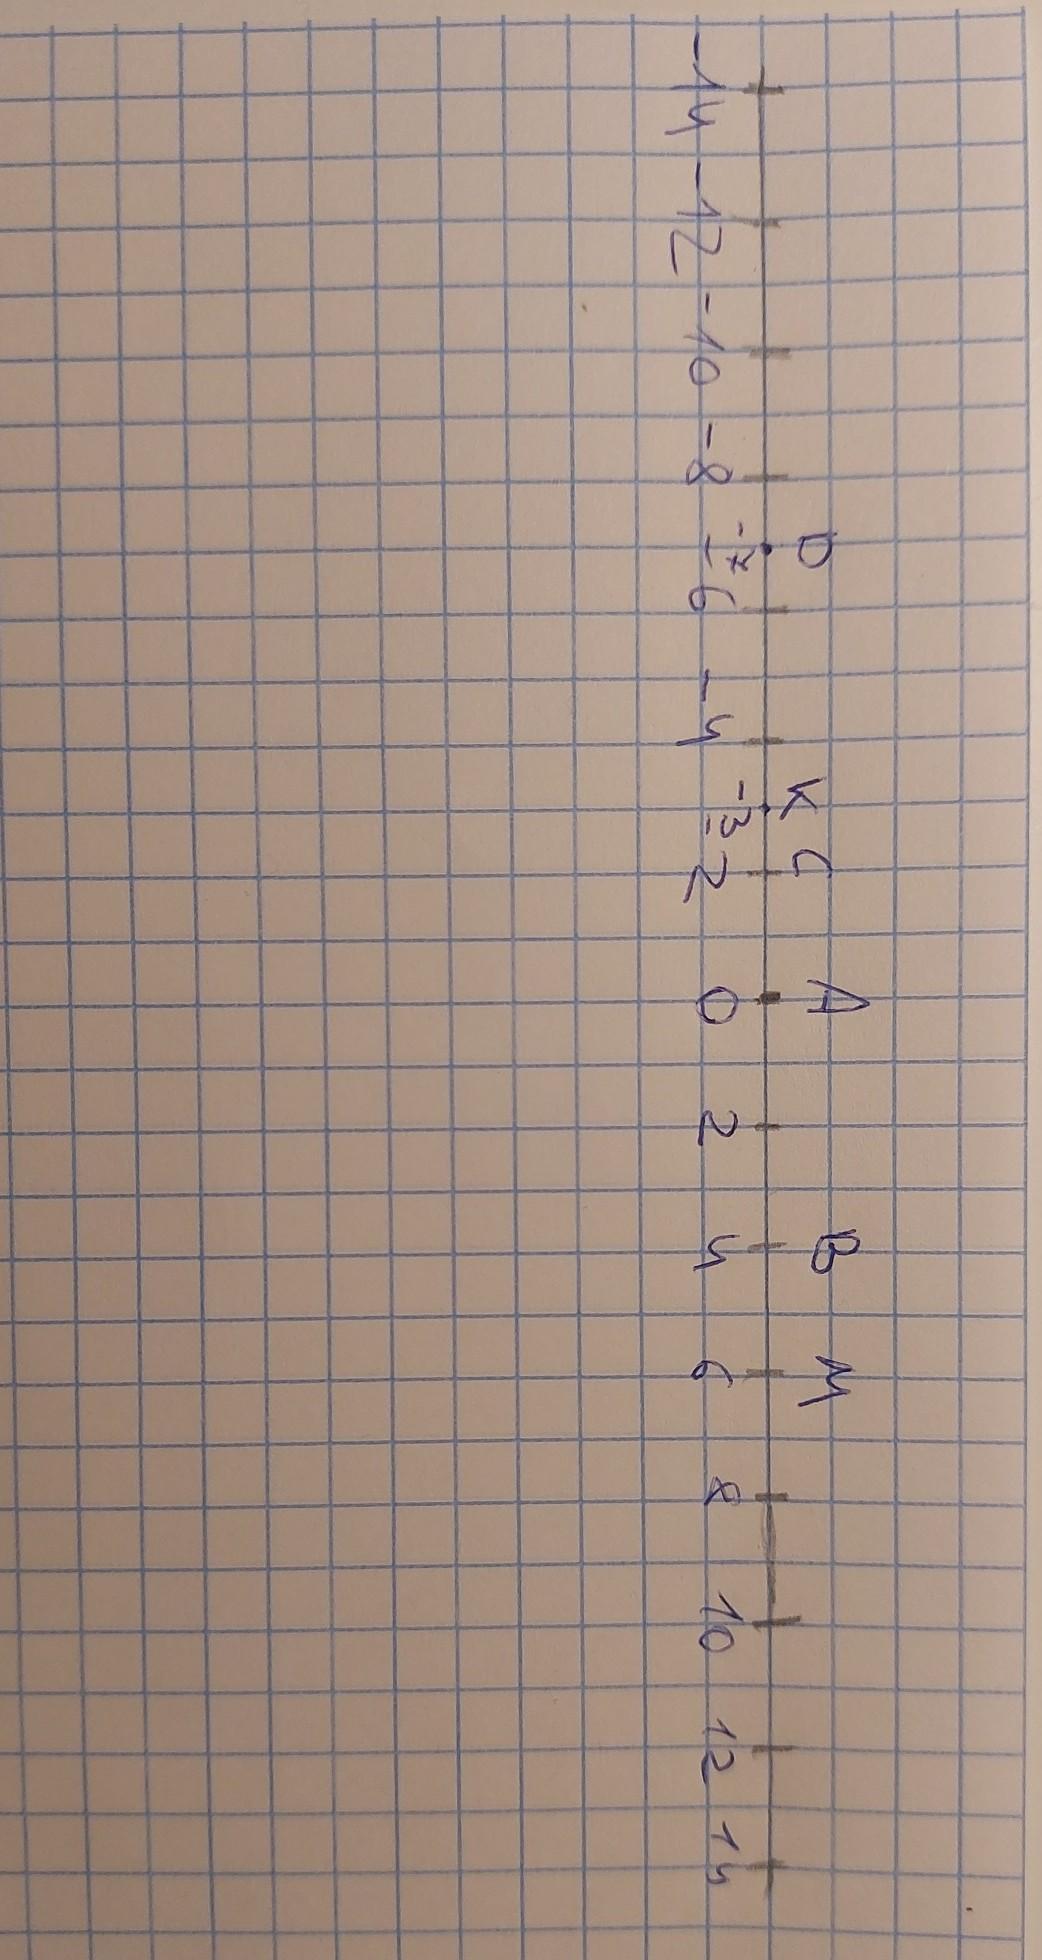 D K C A B M
-14 -12 -10 -8 -7 -6 -4 -3 -2 0 2 4 6 8 10 12 14